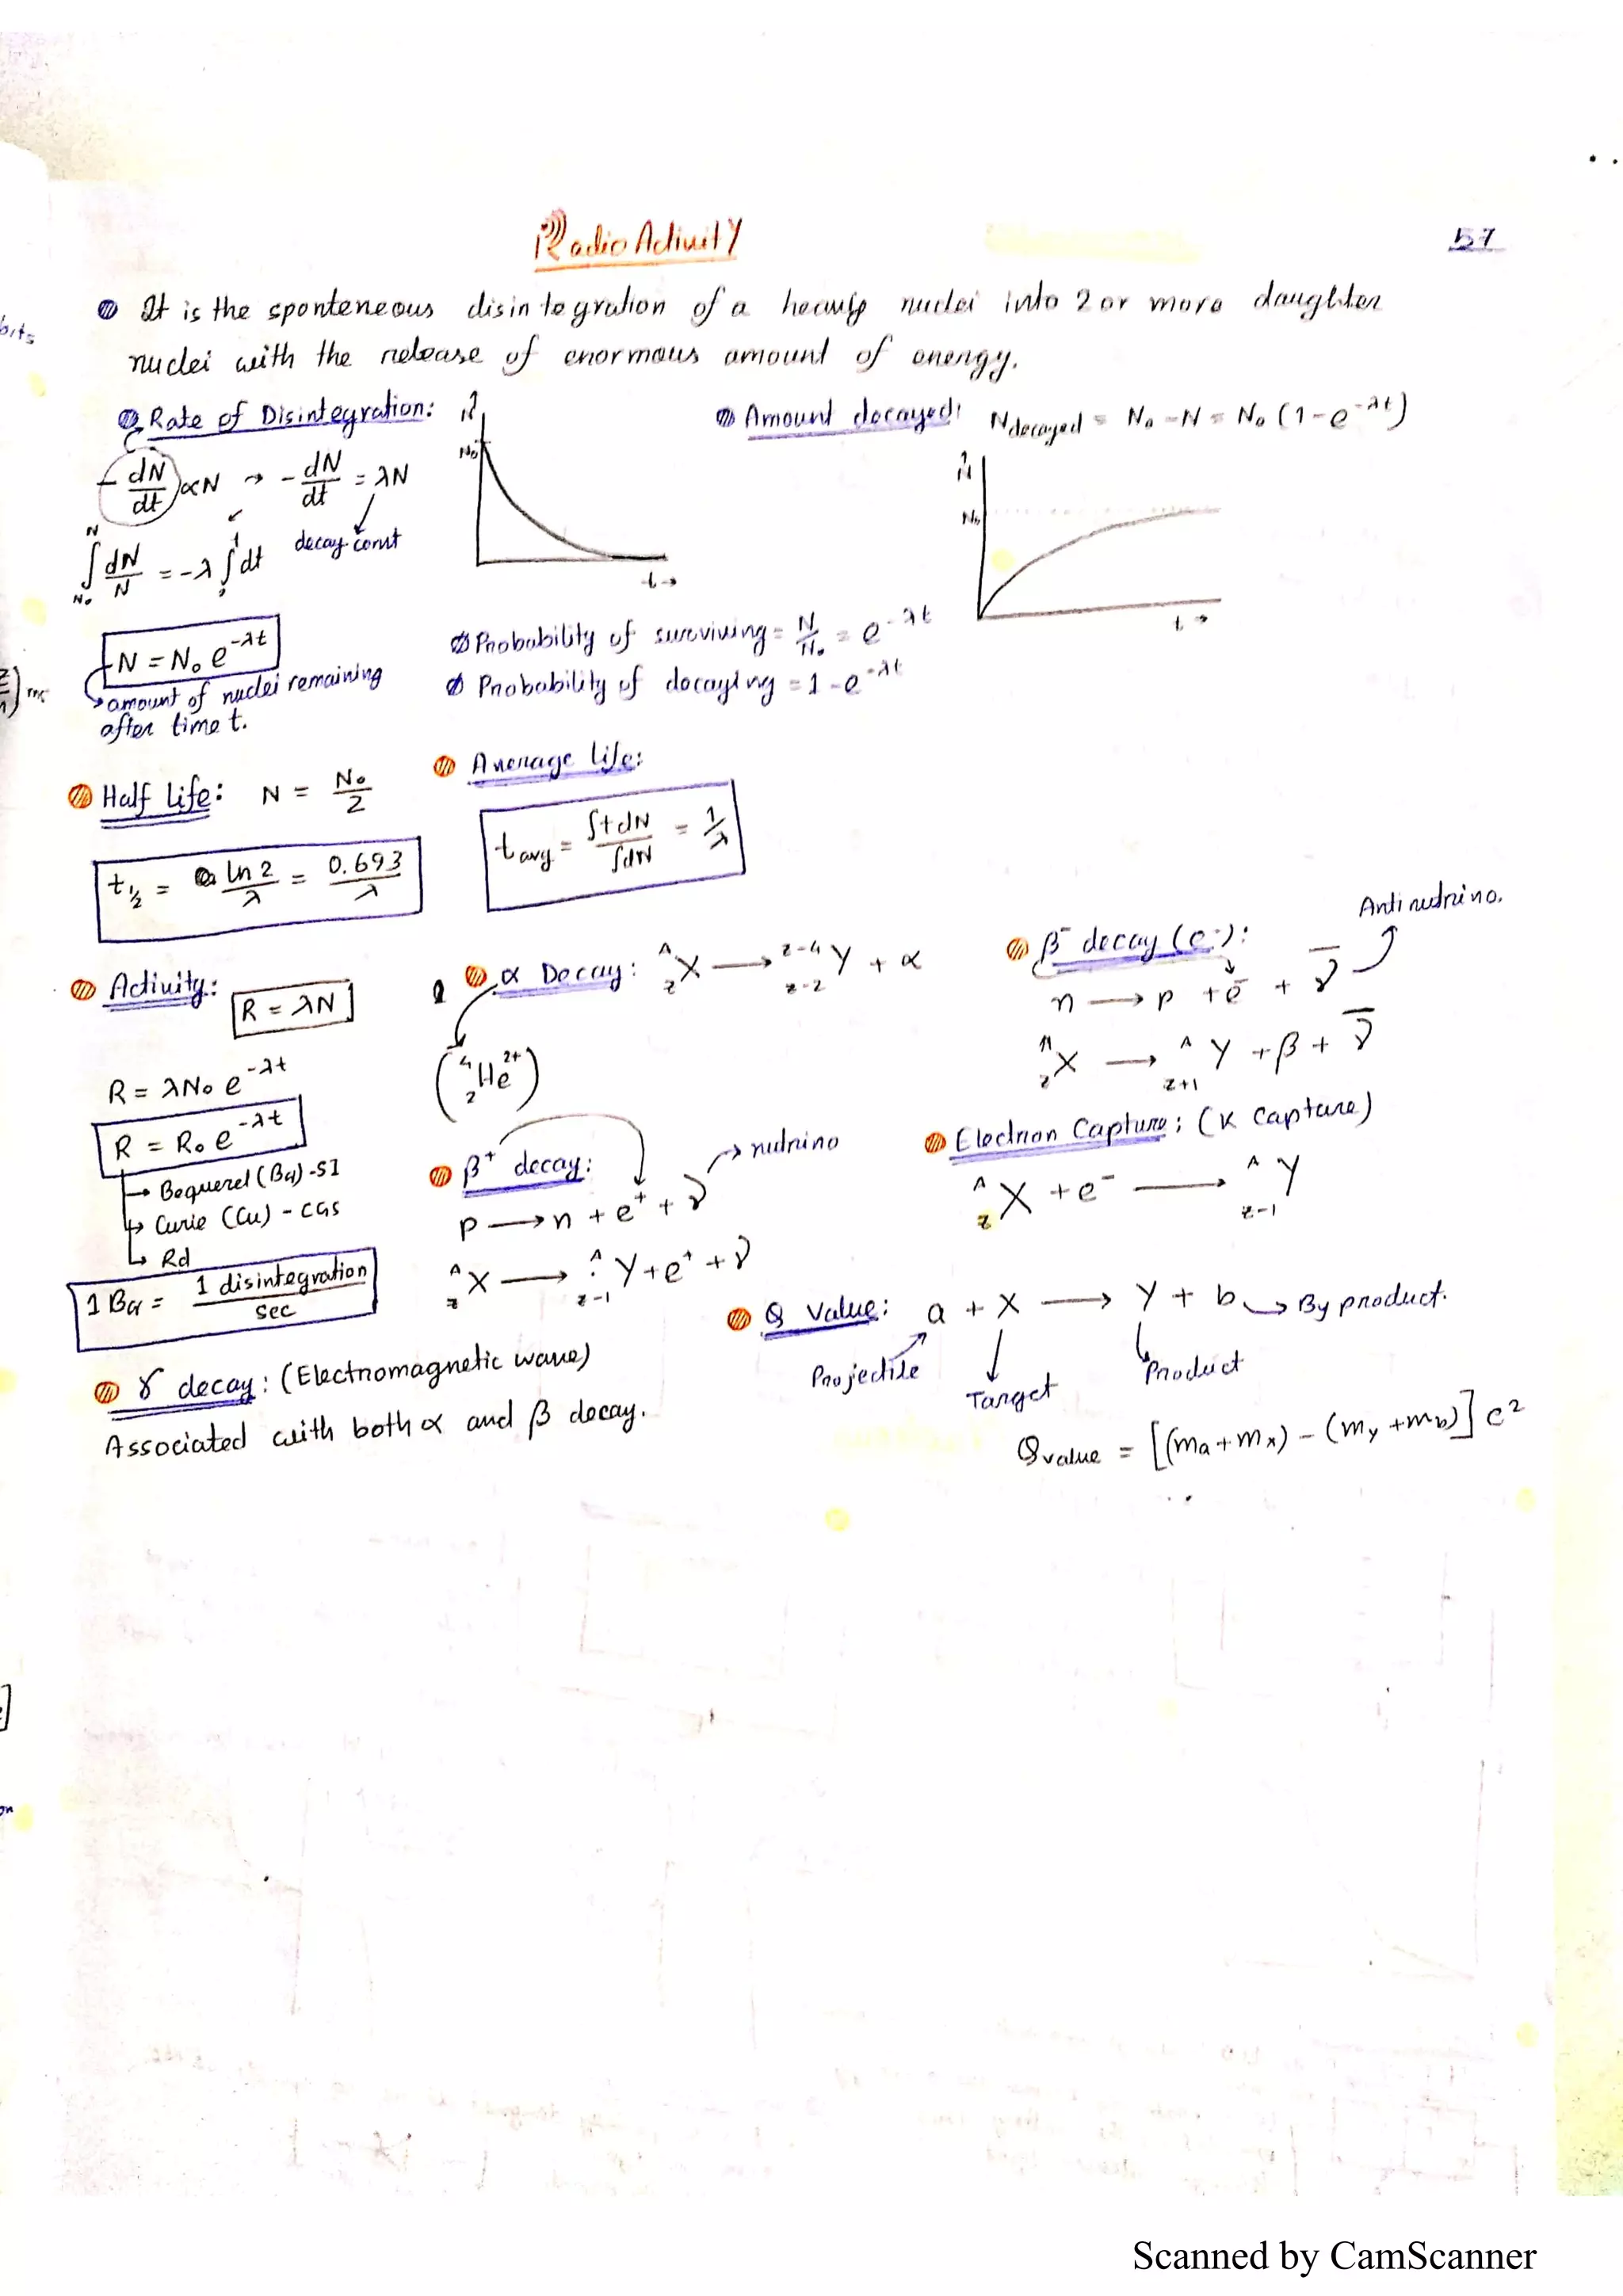 RadioActivity
57
It is the sponteneous disintegration of a heavy nuclei into 2 or more daughter
nuclei with the release of enormous amount of energy.
Rate of Disintegration:
-dN/dt ∝ N → -dN/dt = λN
decay const
∫ dN/N = -λ ∫ dt
N
N₀
t
0
N = N₀ e^-λt
amount of nuclei remaining
after time t.
N
N₀
t →
Amount decayed: N decayed = N₀ - N = N₀ (1 - e^-λt)
N
N₀
t →
Probability of surviving = N/N₀ = e^-λt
Probability of decaying = 1 - e^-λt
Half Life: N = N₀/2
t½ = ln 2/λ = 0.693/λ
Average Life:
t avg = ∫t dN / ∫dN = 1/λ
Activity:
R = λN
R = λN₀ e^-λt
R = R₀ e^-λt
→ Bequerel (Bq) - SI
→ Curie (Cu) - CGS
→ Rd
1 Bq = 1 disintegration / sec
α Decay: A Z X → Z-4 Z-2 Y + α
(4 2 He 2+)
β⁻ decay (e⁻):
Anti nutrino.
n → p + e⁻ + ν̄
A Z X → A Z+1 Y + β + ν̄
β⁺ decay:
→ nutrino
p → n + e⁺ + ν
A Z X → A Z-1 Y + e⁺ + ν
Electron Capture: (K Capture)
A Z X + e⁻ → A Z-1 Y
γ decay: (Electromagnetic wave)
Associated with both α and β decay.
Q Value: a + X → Y + b → By product.
Projectile
Target
Product
Q value = [(ma + mx) - (my + mb)] c²
bits
Scanned by CamScanner